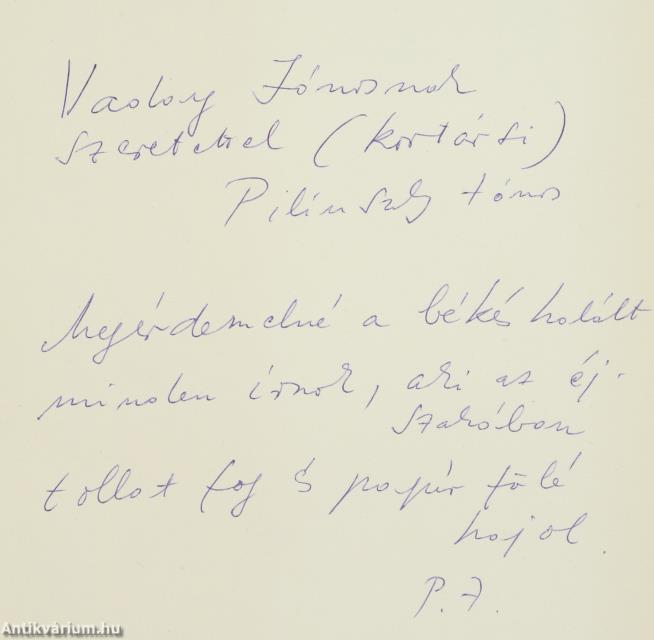 Vaday Jánosnak
szeretettel (kortársi)
Pilinszky János
Megérdemelné a békés halált
minden írnok, aki az éj-
szakában
tollat fog és papír fölé
hajol.
P. J.
Antikvárium.hu